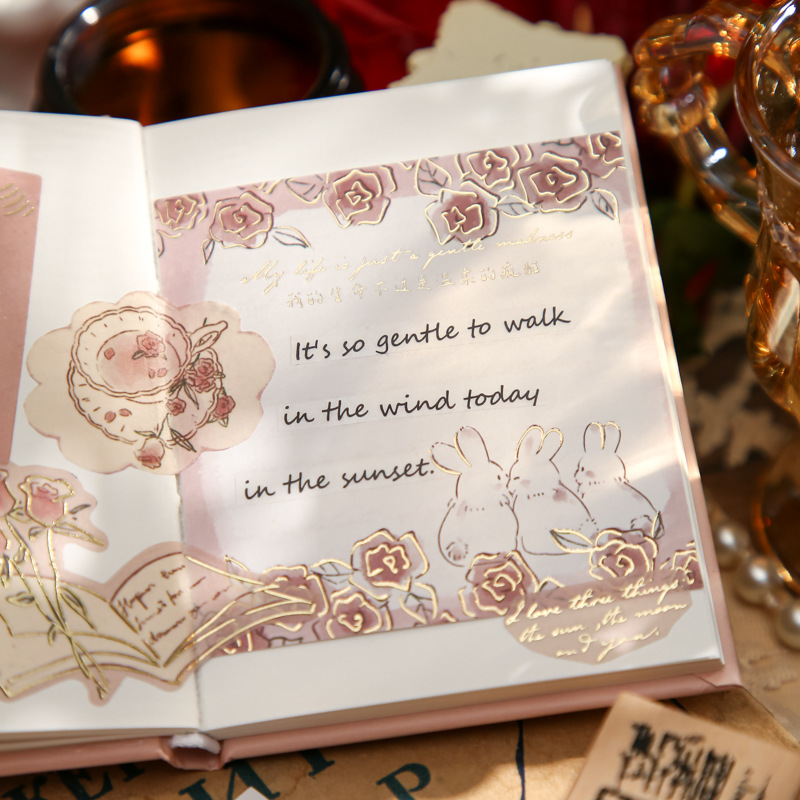 My life is just a gentle madness
我的生命不过是
It's so gentle to walk
in the wind today
in the sunset.
I love three things
the sun, the moon
and you.